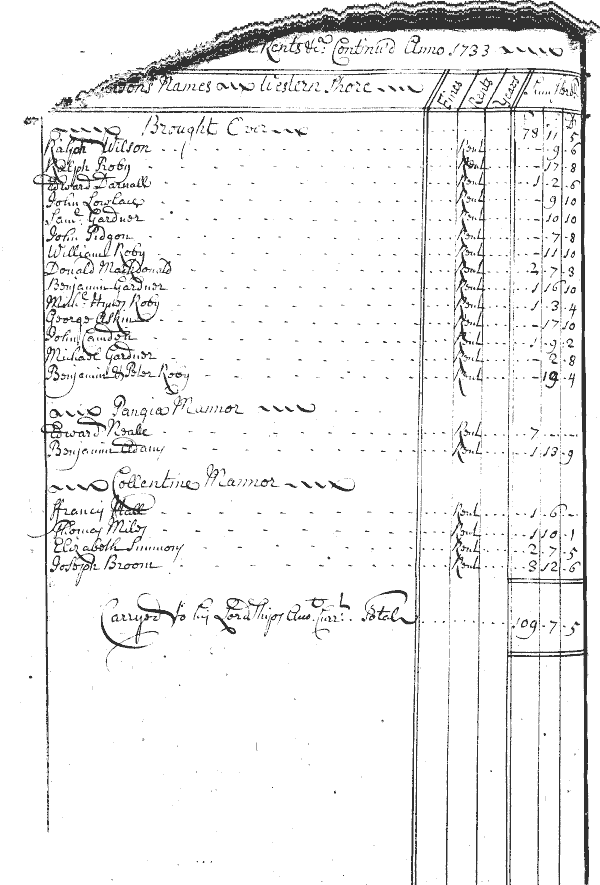 Rents &c. Continu'd Anno 1733
Persons Names Western Shore Fines Rents Years Sum Sterl
Brought Over 78 11 5
Ralph Wilson Rent - 9 6
Ralph Roby Rent - 17 8
Edward Darnall Rent 1 2 6
John Lovelace Rent - 9 10
Sam.l Gardner Rent - 10 10
John Pidgon Rent - 7 8
William Roby Rent - 11 10
Donald Mackdonald Rent 2 7 8
Benjamin Gardner Rent 1 16 10
Mich.l Hynes Roby Rent 1 3 4
George Askin Rent - 17 10
John Camden Rent 1 9 2
Michael Gardner Rent - 2 8
Benjamin & Peter Roby Rent - 19 4
Pangia Mannor
Edward Neale Rent 7 - -
Benjamin Adams Rent 1 13 9
Collentine Mannor
Francis Hall Rent 1 6 -
Thomas Miles Rent 1 10 1
Elizabeth Simmons Rent 2 7 5
Joseph Broom Rent 3 12 6
Carryed to his Lordships Acc.t Curr.t Total 109 7 5